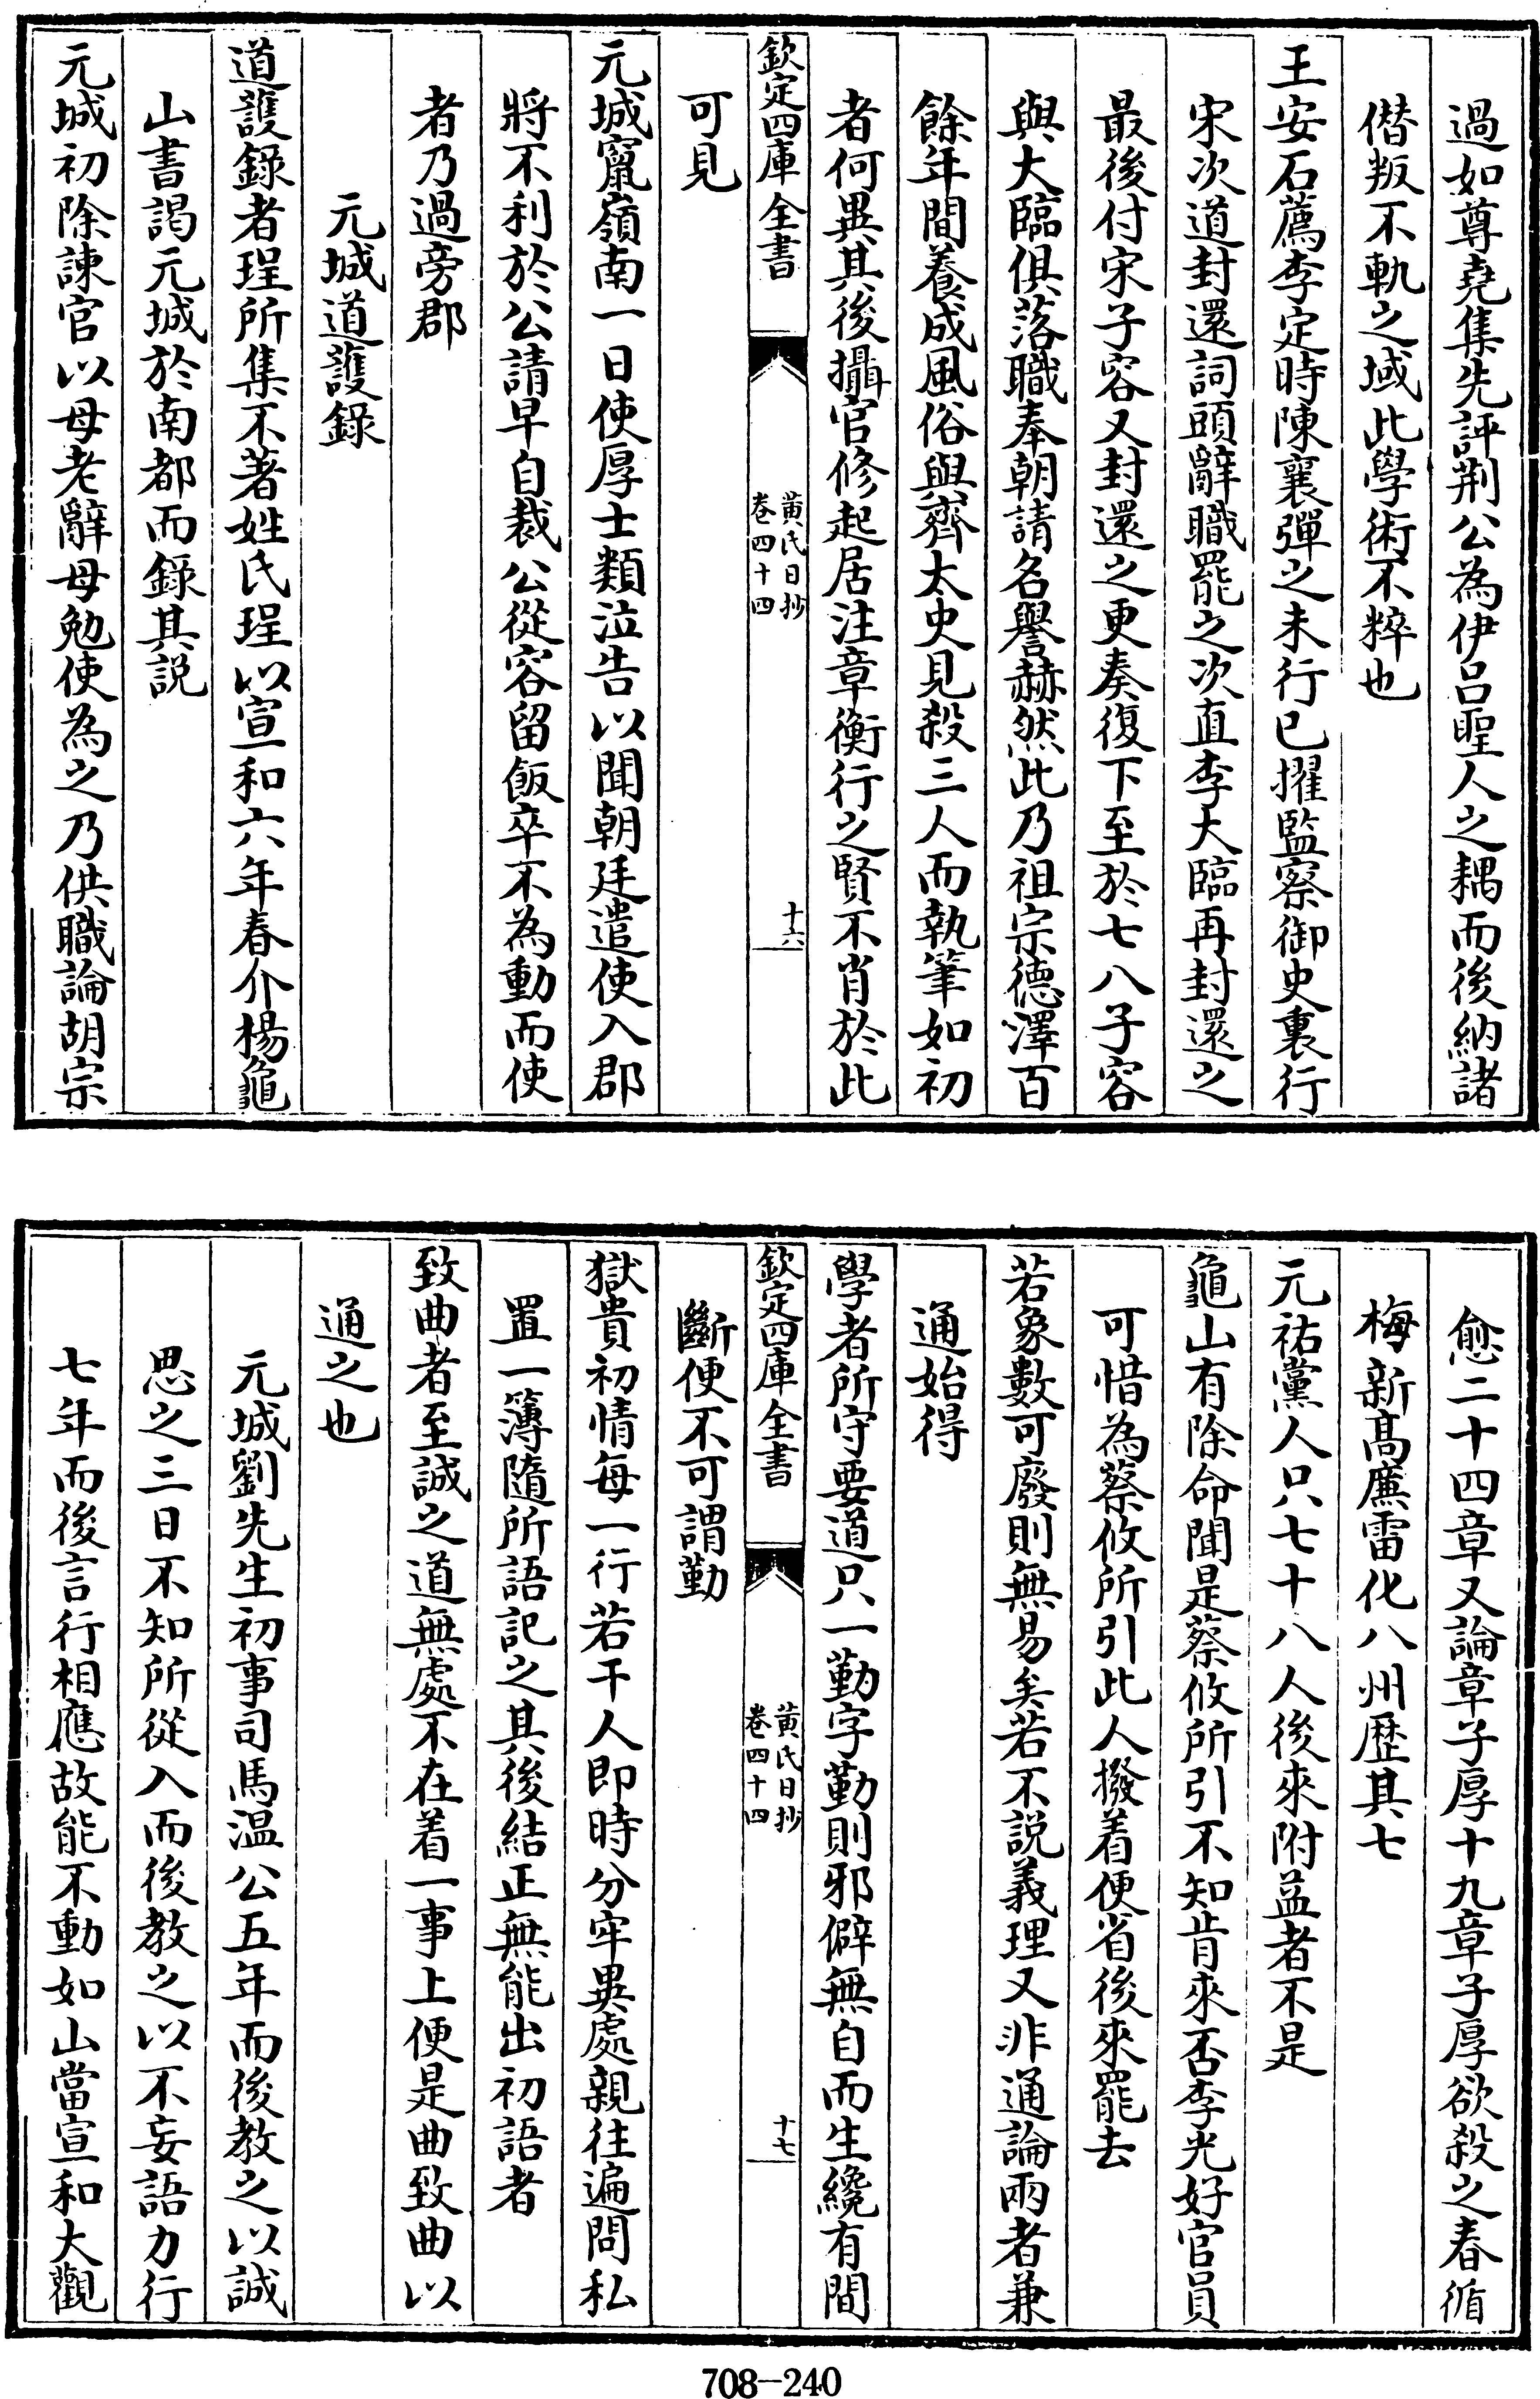 過如尊堯集先評荆公為伊吕聖人之耦而後納諸
僭叛不軌之域此學術不粹也
王安石薦李定時陳襄彈之未行已擢監察御史裏行
宋次道封還詞頭辭職罷之次直李大臨再封還之
最後付宋子容又封還之更奏復下至於七八子容
與大臨俱落職奉朝請名譽赫然此乃祖宗德澤百
餘年間養成風俗與齊太史見殺三人而執筆如初
者何異其後攝官修起居注章衡行之賢不肖於此
欽定四庫全書
黄氏日抄
卷四十四
十六
可見
元城竄嶺南一日使厚士類泣告以聞朝廷遣使入郡
將不利於公請早自裁公從容留飯卒不為動而使
者乃過旁郡
元城道護錄
道護錄者珵所集不著姓氏珵以宣和六年春介楊龜
山書謁元城於南都而錄其説
元城初除諫官以母老辭母勉使為之乃供職論胡宗
愈二十四章又論章子厚十九章子厚欲殺之春循
梅新髙㢘雷化八州歴其七
元祐黨人只七十八人後來附益者不是
龜山有除命聞是蔡攸所引不知肯來否李光好官員
可惜為蔡攸所引此人撥着便省後來罷去
若象數可廢則無易矣若不説義理又非通論兩者兼
通始得
學者所守要道只一勤字勤則邪僻無自而生纔有間
欽定四庫全書
黄氏日抄
卷四十四
十七
斷便不可謂勤
獄貴初情每一行若干人即時分牢異處親往遍問私
置一簿隨所語記之其後結正無能出初語者
致曲者至誠之道無處不在着一事上便是曲致曲以
通之也
元城劉先生初事司馬温公五年而後教之以誠
思之三日不知所從入而後教之以不妄語力行
七年而後言行相應故能不動如山當宣和大觀
708-240